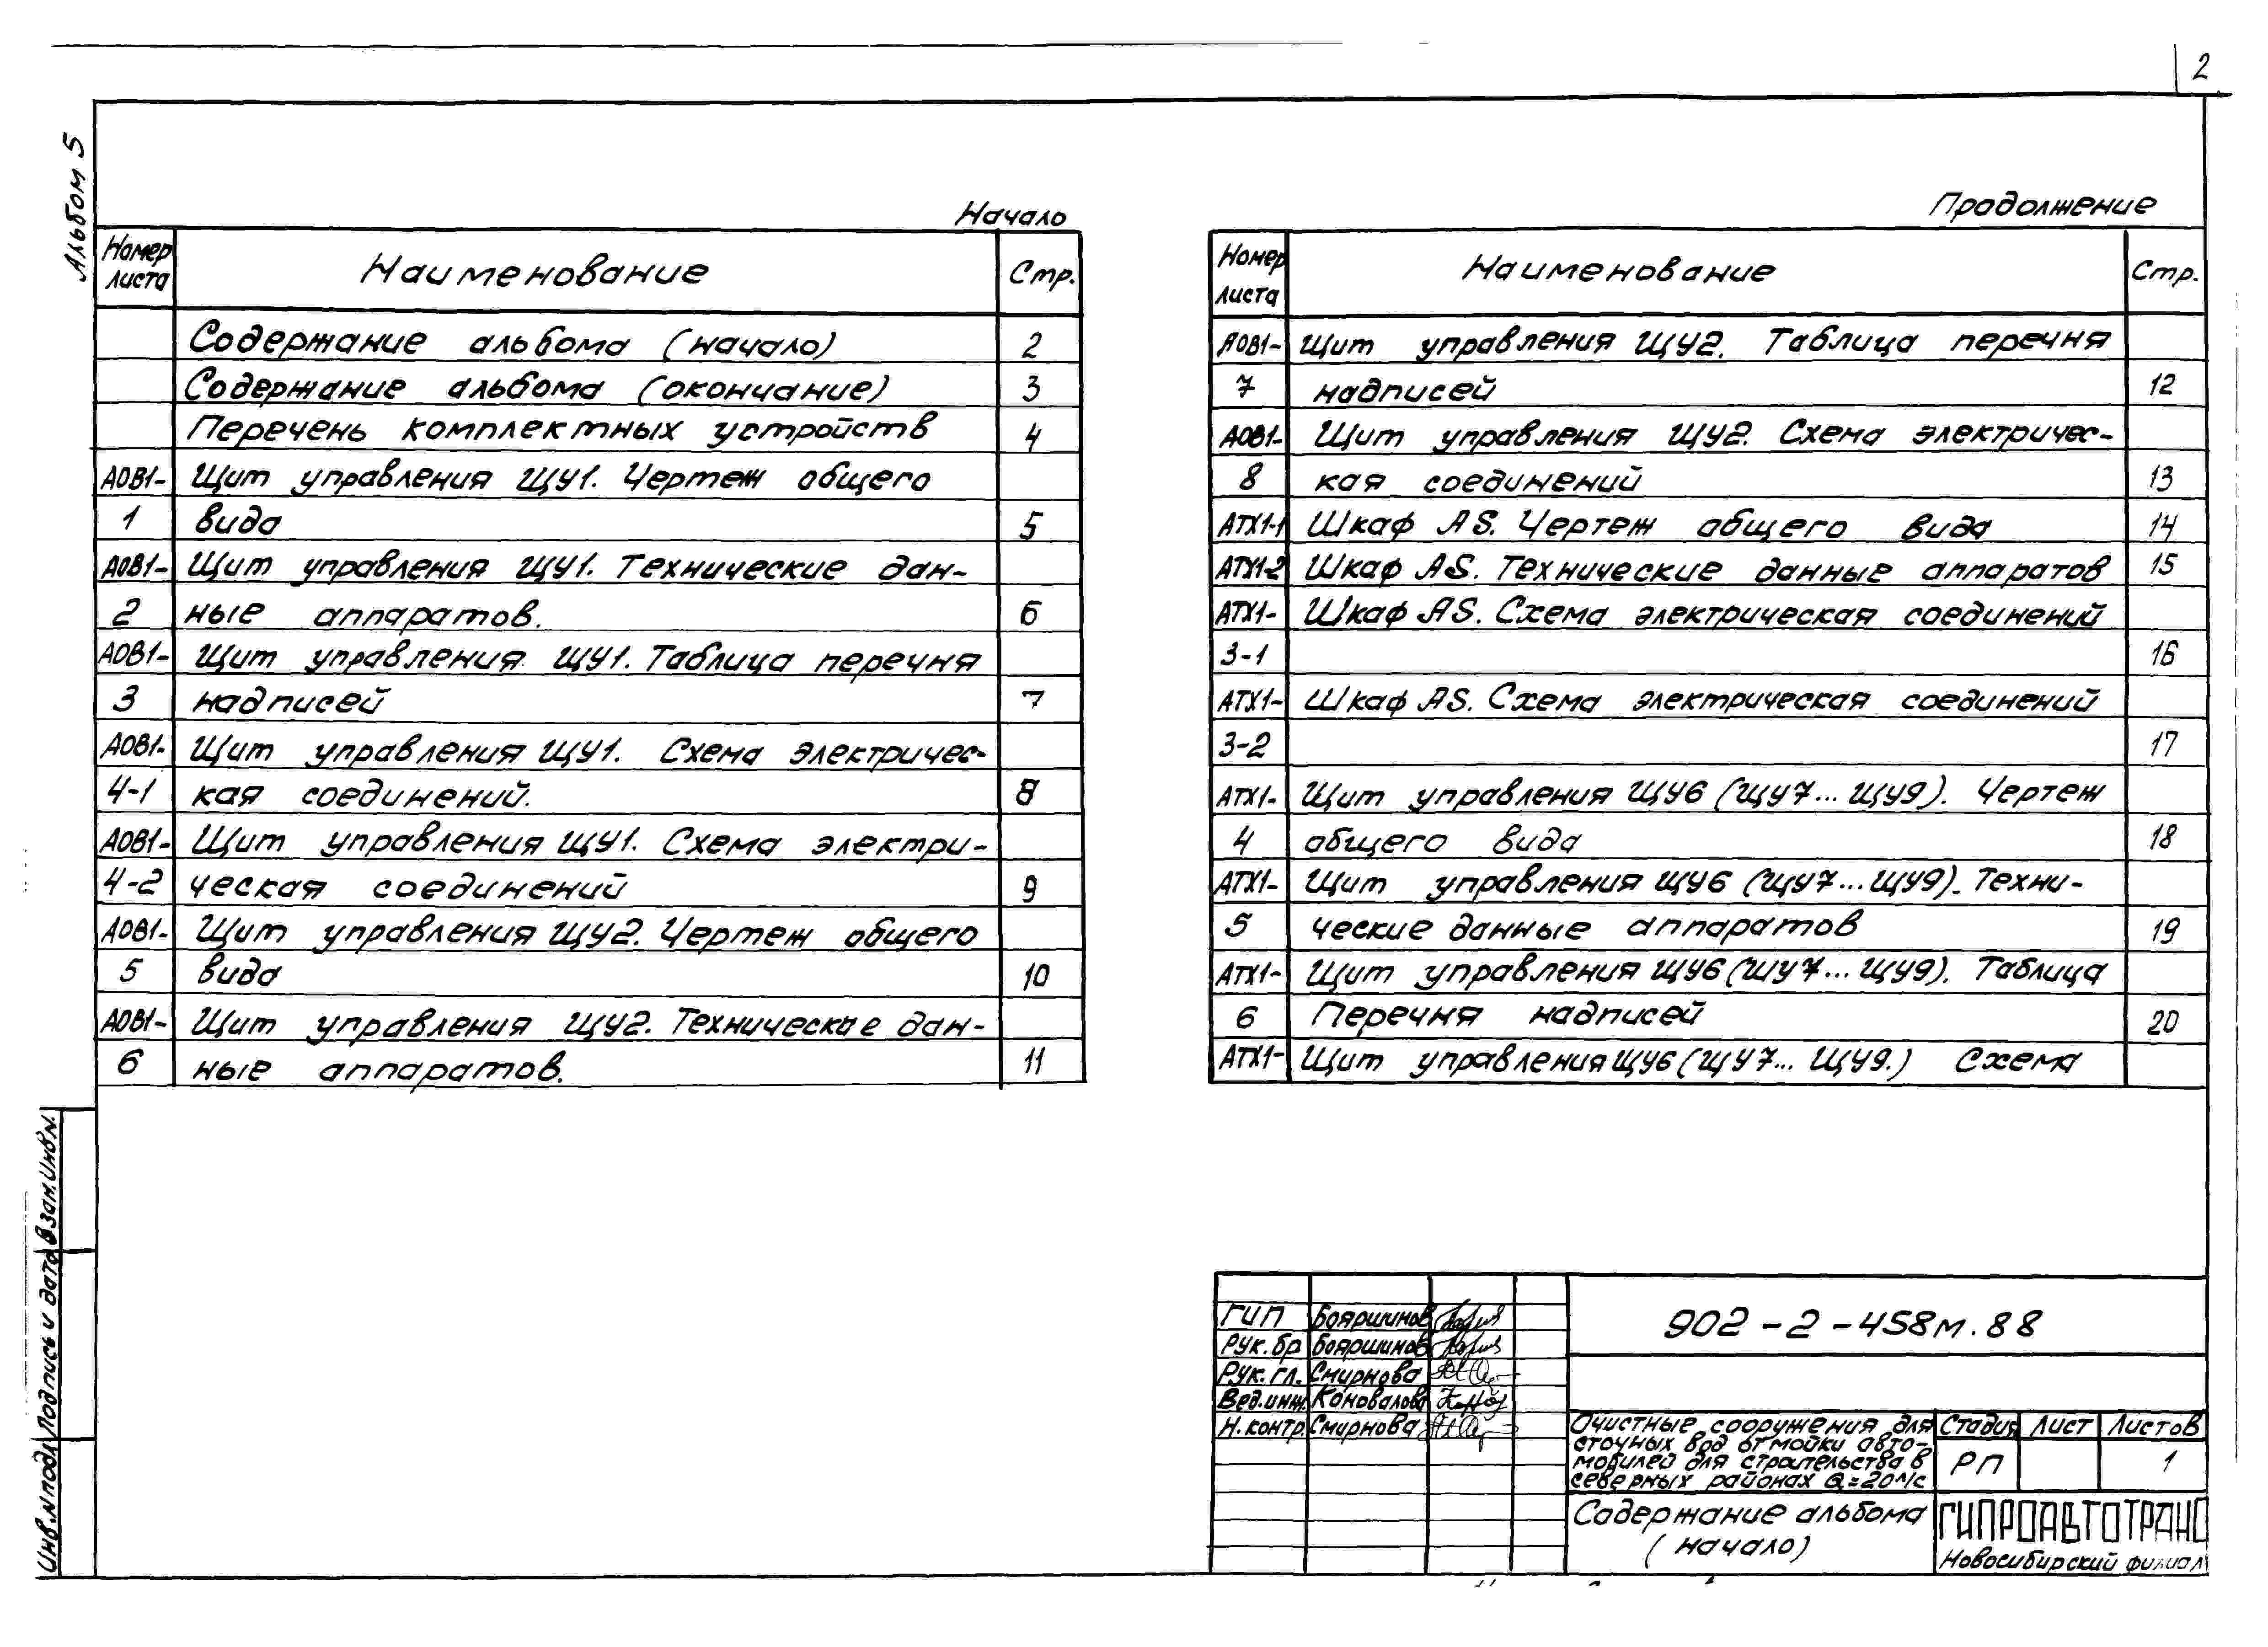 2
Альбом 5
Начало
Номер листа Наименование Стр.
Содержание альбома (начало) 2
Содержание альбома (окончание) 3
Перечень комплектных устройств 4
АОВ1- Щит управления ЩУ1. Чертеж общего
1 вида 5
АОВ1- Щит управления ЩУ1. Технические дан-
2 ные аппаратов. 6
АОВ1- Щит управления ЩУ1. Таблица перечня
3 надписей 7
АОВ1- Щит управления ЩУ1. Схема электричес-
4-1 кая соединений. 8
АОВ1- Щит управления ЩУ1. Схема электри-
4-2 ческая соединений 9
АОВ1- Щит управления ЩУ2. Чертеж общего
5 вида 10
АОВ1- Щит управления ЩУ2. Технические дан-
6 ные аппаратов. 11
Продолжение
Номер листа Наименование Стр.
АОВ1- Щит управления ЩУ2. Таблица перечня
7 надписей 12
АОВ1- Щит управления ЩУ2. Схема электричес-
8 кая соединений 13
АТХ1-1 Шкаф АS. Чертеж общего вида 14
АТХ1-2 Шкаф АS. Технические данные аппаратов 15
АТХ1- Шкаф АS. Схема электрическая соединений
3-1 16
АТХ1- Шкаф АS. Схема электрическая соединений
3-2 17
АТХ1- Щит управления ЩУ6 (ЩУ7... ЩУ9). Чертеж
4 общего вида 18
АТХ1- Щит управления ЩУ6 (ЩУ7... ЩУ9). Техни-
5 ческие данные аппаратов 19
АТХ1- Щит управления ЩУ6 (ЩУ7... ЩУ9). Таблица
6 Перечня надписей 20
АТХ1- Щит управления ЩУ6 (ЩУ7... ЩУ9.) Схема
Инв.N подл. Подпись и дата Взам.Инв.N.
ГИП Бояршинов
Рук.бр Бояршинов
Рук.гл. Смирнова
Вед.инж. Коновалова
Н.контр. Смирнова
902-2-458м.88
Очистные сооружения для
сточных вод от мойки авто-
мобилей для строительства в
северных районах Q=20л/с
Стадия Лист Листов
РП 1
Содержание альбома
(начало)
ГИПРОАВТОТРАНС
Новосибирский филиал